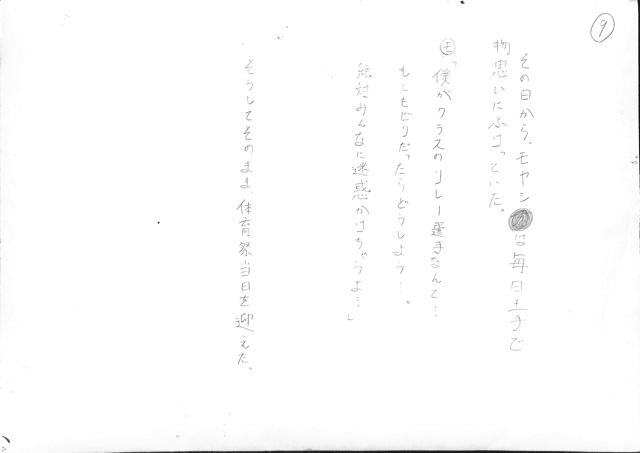 ⑨
その日から、モヤシは毎日土手で
物思いにふけっていた。
㋲「僕がクラスのリレー選手なんて…
もしもビリだったらどうしよう…。
絶対みんなに迷惑かけちゃうよ…」
そうしてそのまま、体育祭当日を迎えた。